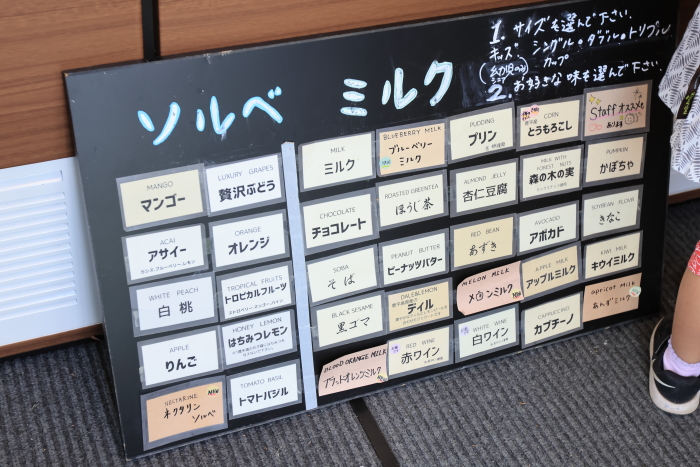 1. サイズを選んで下さい.
キッズ シングル・ダブル・トリプル
(幼児のみ) カップ
2. お好きな味を選んで下さい.
ソルベ
MANGO
マンゴー
LUXURY GRAPES
贅沢ぶどう
ACAI
アサイー
カシス.ブルーベリー.レモン
ORANGE
オレンジ
WHITE PEACH
白桃
TROPICAL FRUITS
トロピカルフルーツ
APPLE
りんご
HONEY LEMON
はちみつレモン
NECTARINE NEW
ネクタリン
ソルベ
TOMATO BASIL
トマトバジル
ミルク
MILK
ミルク
BLUEBERRY MILK
ブルーベリー
ミルク
PUDDING
プリン
CORN
とうもろこし
Staff オススメも
あります
CHOCOLATE
チョコレート
ROASTED GREENTEA
ほうじ茶
ALMOND JELLY
杏仁豆腐
MILK WITH
FOREST NUTS
森の木の実
PUMPKIN
かぼちゃ
SOBA
そば
PEANUT BUTTER
ピーナッツバター
RED BEAN
あずき
AVOCADO
アボカド
SOYBEAN FLOUR
きなこ
BLACK SESAME
黒ゴマ
DALEBLEMON
ディル
MELON MILK
メロンミルク
APPLE MILK
アップルミルク
KIWI MILK
キウイミルク
BLOOD ORANGE MILK
ブラッドオレンジミルク
RED WINE
赤ワイン
WHITE WINE
白ワイン
CAPPUCCINO
カプチーノ
apricot MILK
あんずミルク